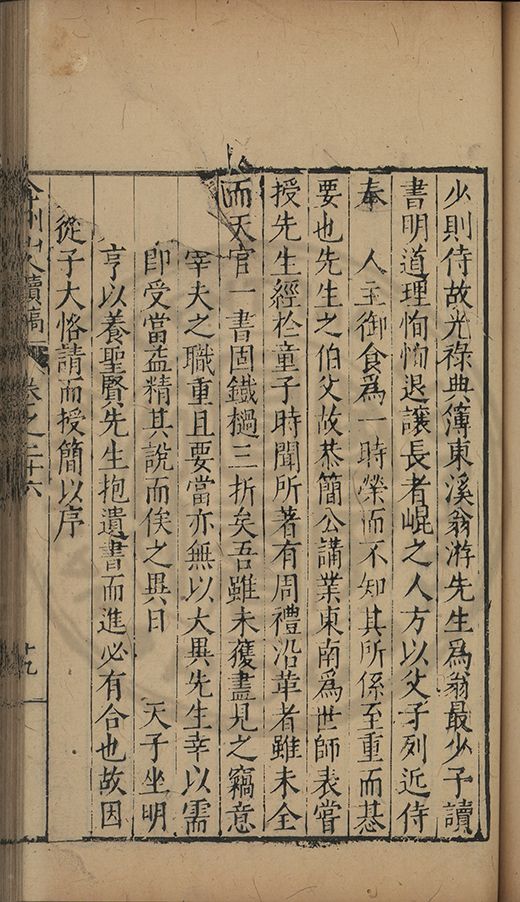 少則侍故光祿典簿東溪翁游先生爲翁最少予讀
書明道理恂恂退讓長者崐之人方以父子列近侍
奉　人主御食爲一時榮而不知其所係至重而甚
要也先生之伯父故恭簡公講業東南爲世師表嘗
授先生經於童子時聞所著有周禮沿革者雖未全
而天官一書固鐵檛三折矣吾雖未獲盡見之竊意
宰夫之職重且要當亦無以大異先生幸以需
即受當益精其說而俟之異日　天子坐明
亨以養聖賢先生抱遺書而進必有合也故因
從子大恪請而授簡以序
弇州山人續稿　卷之二十六　十九